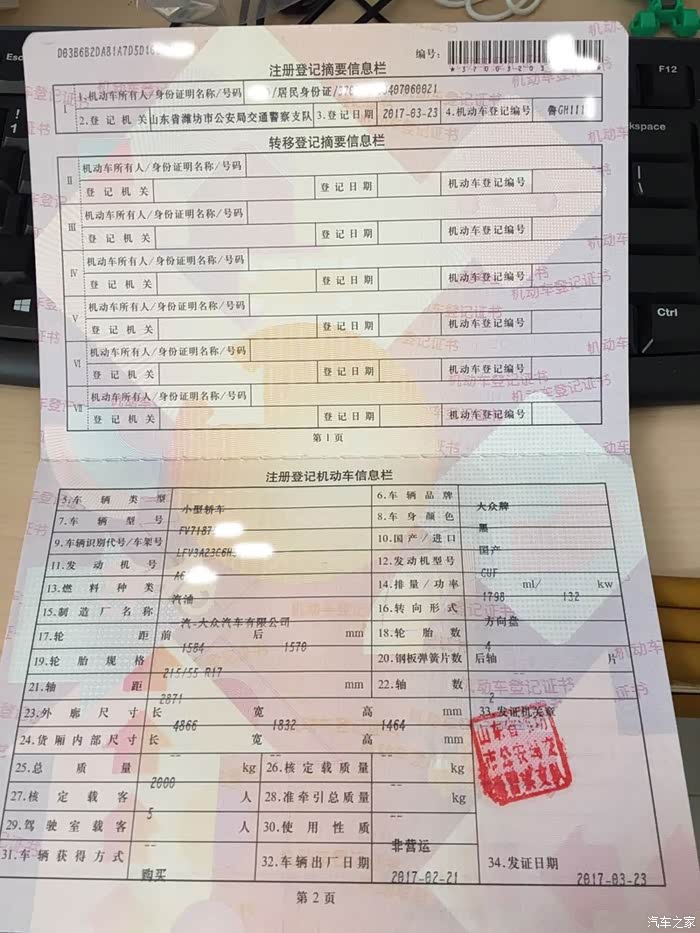 D03B6B2DA81A7D5D16
编号:
注册登记摘要信息栏
I 1.机动车所有人/身份证明名称/号码 /居民身份证/ 0407060021
2.登记机关 山东省潍坊市公安局交通警察支队 3.登记日期 2017-03-23 4.机动车登记编号 鲁GH111
转移登记摘要信息栏
II 机动车所有人/身份证明名称/号码
登记机关 登记日期 机动车登记编号
III 机动车所有人/身份证明名称/号码
登记机关 登记日期 机动车登记编号
IV 机动车所有人/身份证明名称/号码
登记机关 登记日期 机动车登记编号
V 机动车所有人/身份证明名称/号码
登记机关 登记日期 机动车登记编号
VI 机动车所有人/身份证明名称/号码
登记机关 登记日期 机动车登记编号
VII 机动车所有人/身份证明名称/号码
登记机关 登记日期 机动车登记编号
第1页
注册登记机动车信息栏
5.车辆类型 小型轿车 6.车辆品牌 大众牌
7.车辆型号 FV7187 8.车身颜色 黑
9.车辆识别代号/车架号 LFV3A23C6H 10.国产/进口 国产
11.发动机号 A6 12.发动机型号 CUF
13.燃料种类 汽油 14.排量/功率 1798 ml/ 132 kw
15.制造厂名称 一汽-大众汽车有限公司 16.转向形式 方向盘
17.轮距 前 1584 后 1570 mm 18.轮胎数 4
19.轮胎规格 215/55 R17 20.钢板弹簧片数 后轴 -- 片
21.轴距 2871 mm 22.轴数 2
23.外廓尺寸 长 4866 宽 1832 高 1464 mm 33.发证机关章
24.货厢内部尺寸 长 -- 宽 -- 高 -- mm
25.总质量 2000 kg 26.核定载质量 -- kg
27.核定载客 5 人 28.准牵引总质量 -- kg
29.驾驶室载客 -- 人 30.使用性质 非营运
31.车辆获得方式 购买 32.车辆出厂日期 2017-02-21 34.发证日期 2017-03-23
第2页
Esc
F12
Ctrl
汽车之家